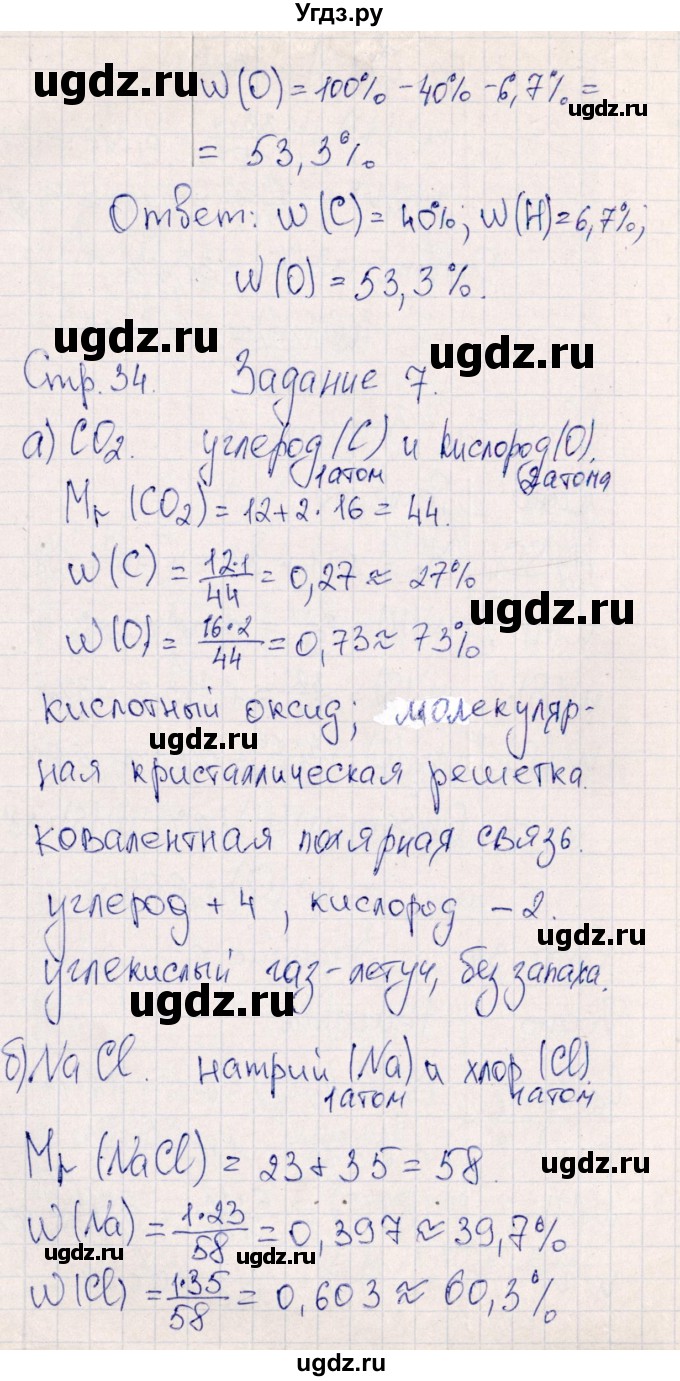 Угдз.ру
ugdz.ru
W(O) = 100% - 40% - 6,7% =
ugdz.ru
= 53,3%
Ответ: W(C) = 40%; W(H) = 6,7%;
W(O) = 53,3%.
ugdz.ru
ugdz.ru
Стр. 34. Задание 7.
а) CO2. углерод (C) и кислород (O).
1 атом 2 атома
Mr (CO2) = 12 + 2 · 16 = 44.
W(C) = 12·1/44 = 0,27 ≈ 27%
ugdz.ru
W(O) = 16·2/44 = 0,73 ≈ 73%
кислотный оксид; молекуляр-
ugdz.ru
ная кристаллическая решетка.
ковалентная полярная связь.
углерод + 4, кислород - 2.
ugdz.ru
углекислый газ - летуч, без запаха.
ugdz.ru
б) NaCl. натрий (Na) и хлор (Cl).
1 атом 1 атом
Mr (NaCl) = 23 + 35 = 58.
ugdz.ru
W(Na) = 1·23/58 = 0,397 ≈ 39,7%
ugdz.ru ugdz.ru
W(Cl) = 1·35/58 = 0,603 ≈ 60,3%
ugdz.ru